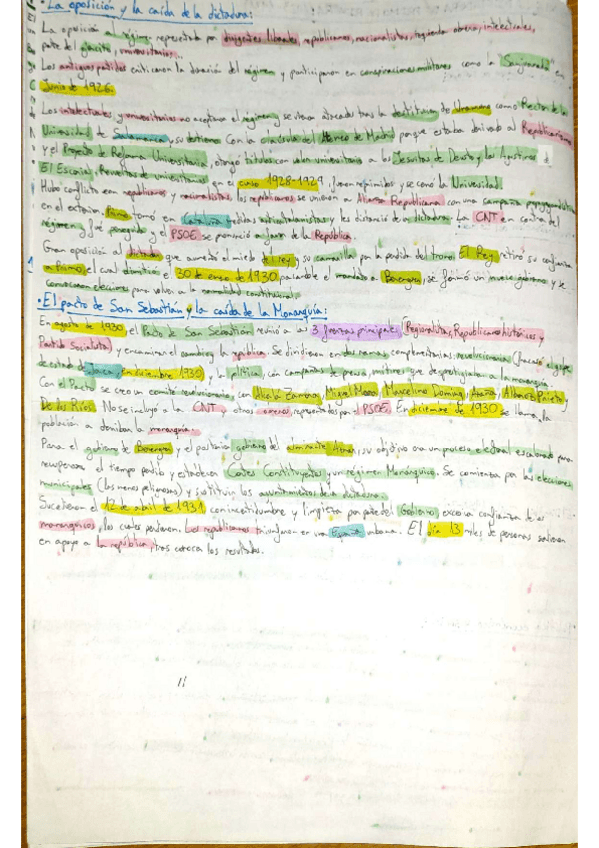 · La oposición y la caída de la dictadura:
La oposición al régimen representada por dirigentes liberales, republicanos, nacionalistas, izquierda obrera, intelectuales,
parte del ejército, universitarios...
Los antiguos partidos criticaron la duración del régimen y participaron en conspiraciones militares como la "Sanjuanada" en
Junio de 1926.
Los intelectuales y universitarios no aceptaron el régimen y se vieron atacados tras la destitución de Unamuno como Rector de la
Universidad de Salamanca y su destierro. Con la clausula del Ateneo de Madrid porque estaba derivado al Republicanismo
y el Proyecto de Reforma Universitaria, otorgo titulos con valor universitario a los Jesuitas de Deusto y los Agustinos de
El Escorial. Revueltas de universitarios en el curso 1928-1929, fueron reprimidos y se como la Universidad.
Hubo conflicto con republicanos y nacionalistas, los republicanos se unieron a Alianza Republicana con una campaña propagandística
en el extranjero. Primo tomó en Cataluña medidas anticatalanistas y les distanció de su dictadura. La CNT en contra del
régimen y fue perseguido y el PSOE se pronunció a favor de la República.
Gran oposición al dictador que aumentó el miedo del rey y su camarilla por la perdida del trono. El Rey retiro su confianza
a Primo, el cual dimitió el 30 de enero de 1930 pasandole el mandato a Berenguer, se formó un nuevo gobierno y se
convocaron elecciones para volver a la normalidad constitucional.
· El pacto de San Sebastián y la caída de la Monarquía:
En agosto de 1930 el Pacto de San Sebastián reunió a las 3 fuerzas principales (Regionalistas, Republicanos históricos y
Partido Socialista) y encaminar el cambio a la república. Se dividieron en dos ramas complementarias: revolucionaria (fracasó el golpe
de estado de Jaca en diciembre 1930), y la política, con campañas de prensa, mitines que desprestigiaban a la monarquía.
Con el Pacto se creo un comité revolucionario, con Alcalá Zamora, Miguel Maura, Marcelino Domingo, Azaña, Albornoz Prieto y
De los Ríos. No se incluyo a la CNT y otros obreros representados por el PSOE. En diciembre de 1930 se llama a la
población a derribar la monarquía.
Para el gobierno de Berenguer y el posterior gobierno del almirante Aznar, su objetivo era un proceso electoral escalonado para
recuperar el tiempo perdido y establecer Cortes Constituyentes y un régimen Monárquico. Se comienza por las elecciones
municipales (las menos peligrosas) y sustituir los ayuntamientos de la dictadura.
Sucedieron el 12 de abril de 1931 con incertidumbre y limpieza por parte del Gobierno, excesiva confianza de los
monarquicos, los cuales perdieron. Los republicanos triunfaron en una España urbana. El día 13 miles de personas salieron
en apoyo a la república, tras conocer los resultados.